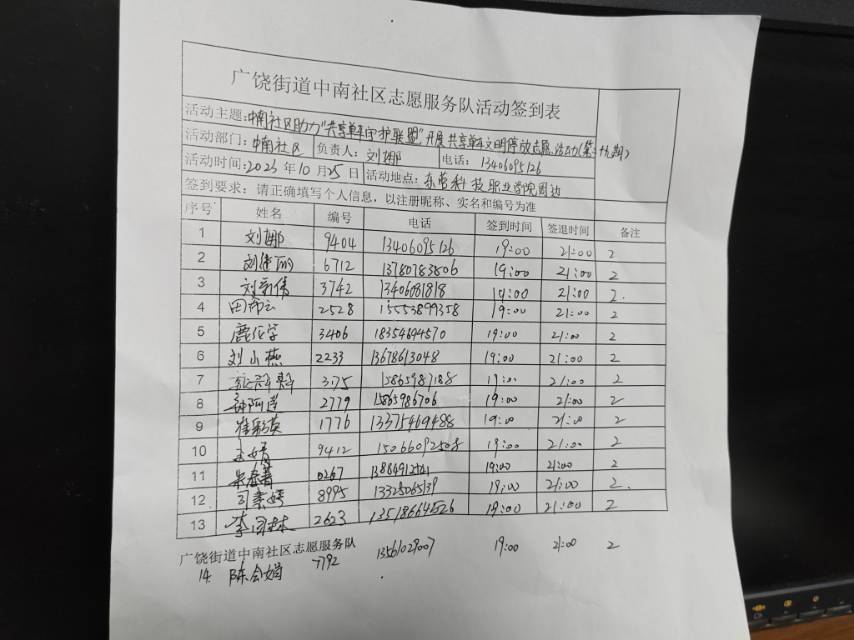 广饶街道中南社区志愿服务队活动签到表
活动主题：中南社区助力“共享单车守护联盟”开展共享单车文明停放志愿活动(第二十九期)
活动部门：中南社区 负责人：刘娜 电话：13406095126
活动时间：2023年10月25日 活动地点：东营科技职业学院周边
签到要求：请正确填写个人信息，以注册昵称、实名和编号为准
序号 姓名 编号 电话 签到时间 签退时间 备注
1 刘娜 9404 13406095126 19:00 21:00 2
2 刘 丽 6712 13780783806 19:00 21:00 2
3 刘新伟 3742 13406081818 19:00 21:00 2.
4 田 云 2528 15553899358 19:00 21:00 2
5 鹿 学 3406 18354694570 19:00 21:00 2
6 刘小燕 2233 13678613048 19:00 21:00 2
7 3175 15865987188 19:00 21:00 2
8 2779 15865986706 19:00 21:00 2
9 崔彩英 1776 13375469488 19:00 21:00 2
10 王娟 9412 15066092508 19:00 21:00 2
11 0267 19:00 21:00 2
12 司素娉 8995 13325065139 19:00 21:00 2.
13 李 2623 13518664526 19:00 21:00 2
广饶街道中南社区志愿服务队
14. 陈会娟 7792 13561029007 19:00 21:00 2